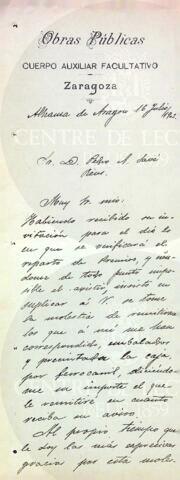 Obras Públicas
CUERPO AUXILIAR FACULTATIVO
Zaragoza
Alhama de Aragón 16 Julio
Sr. D. Pedro A. Savé
Reus.
Muy Sr. mio:
Habiendo recibido su in-
vitación para el dia 20
en que se verificará el
reparto de Premios, y sién-
dome de todo punto impo-
sible el asistir, insisto en
suplicar á V. se tome
la molestia de remitirme
los que á mi me han
correspondido, embalados
y precintada la caja,
por ferrocarril, diciendo-
me su importe el que
le remitiré en cuanto
reciba su aviso.
Al propio tiempo que
le doy las más expresivas
gracias por esta moles-
CENTRE DE LEC
1859